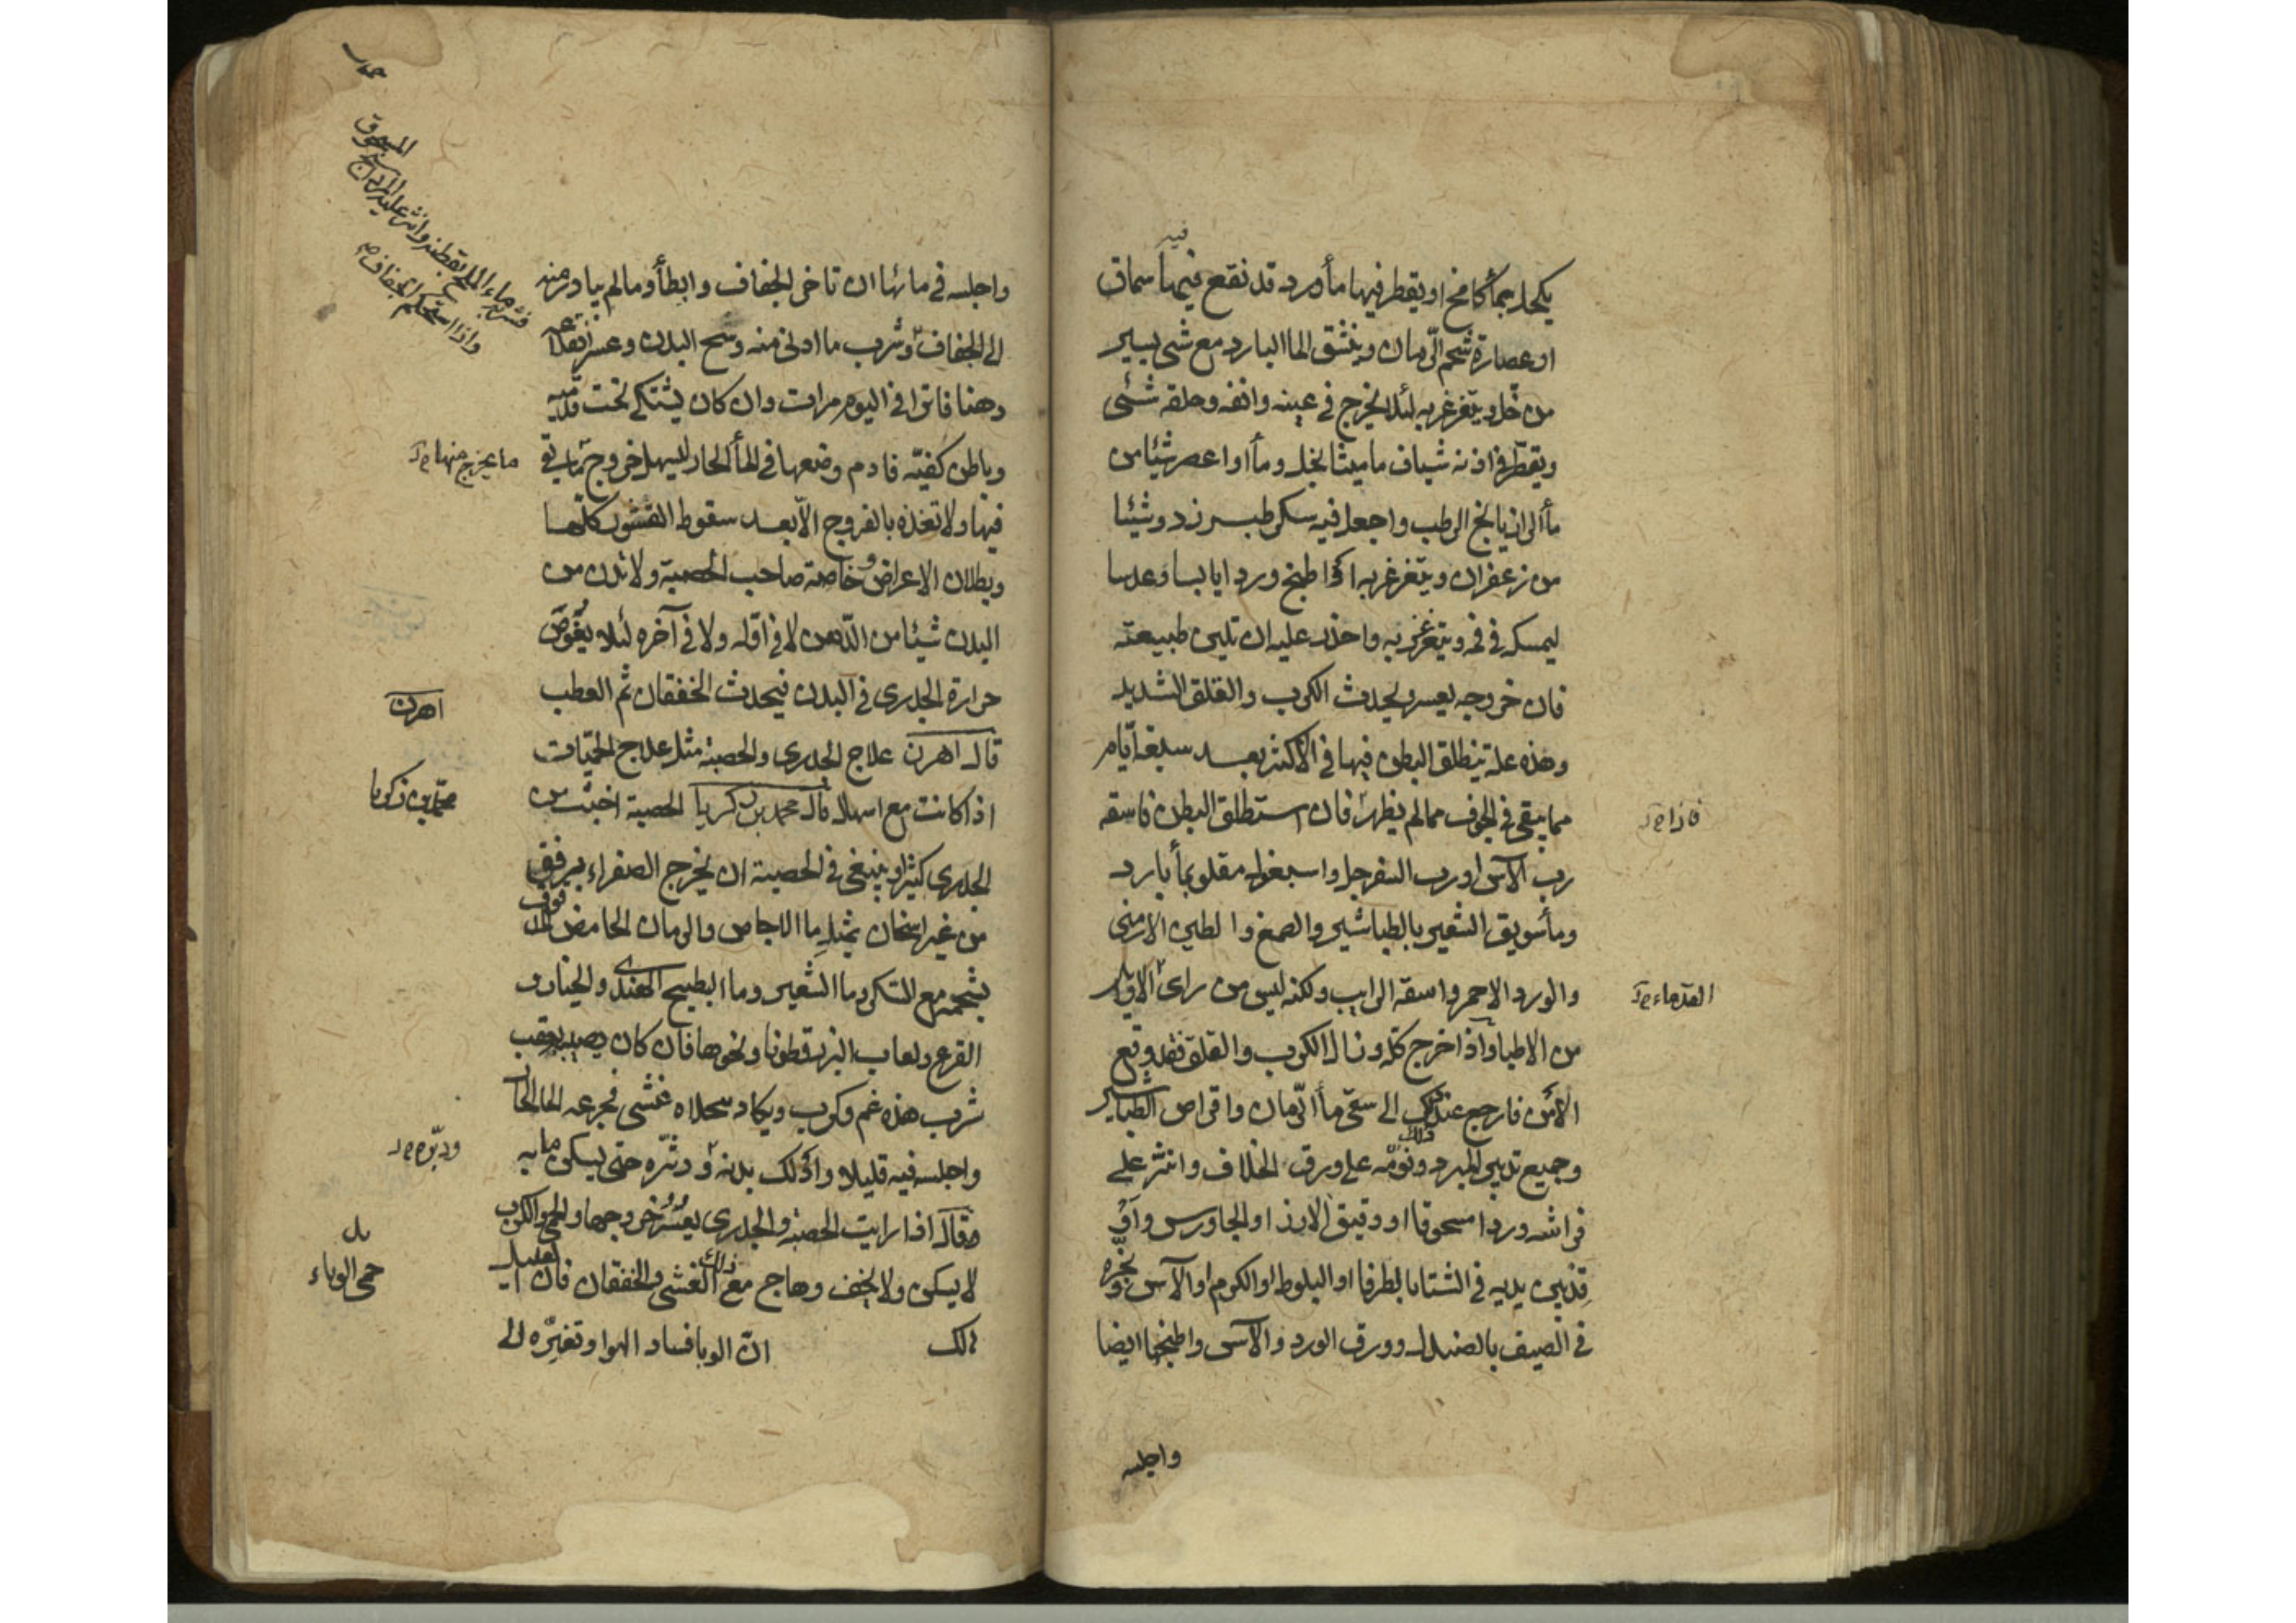 فيه
يكحل بمأ كامخ او يقطر فيها مأ ورد قد نقع فيها سماق
او عصارة شحم الرمان وينشق الما البارد مع شى يسير
من خل ويتغرغر به لئلا يخرج فى عينه وانفه وحلقه شئى
ويقطر فى اذنه شياف ماميثا بخل ومأ او اعصر شيئا من
مأ الرازيانخ الرطب واجعل فيه سكر طبرزد وشيئا
من زعفران ويتغرغر به اذا طبخ وردا يابسا وعدسا
ليمسكه فى فمه ويتغرغر به واحذر عليه ان تلين طبيعته
فان خروجه يعسر ويحدث الكرب والقلق الشديد
وهذه علة ينطلق البطن فيها فى الاكثر بعد سبعة ايام
مما يبقى فى الجوف مما لم يظهر فان استطلق البطن فاسقه
فاذا صح
رب الآس او رب السفرجل واسبغول مقلو بمأ بارد
ومأ سويق الشعير بالطباشير والصمغ والطين الارمنى
والورد الاحمر واسقه الرايب ولكنه ليس من راى الاوائل
القدماء صح
من الاطبا واذا خرج كله وزال الكرب والقلق فقد وقع
الامن فارجع عند ذلك الى سقى مأ الرمان واقراص الطباشير
وجميع تدبير المبرد ونومه على ورق الخلاف وانثر على
فراشه وردا مسحوقا او دقيق الارز او الجاورس واوقد
بين يديه فى الشتا بالطرفا او البلوط او الكرم او الآس وبخره
فى الصيف بالصندل وورق الورد والآس واطبخها ايضا
واجلسه
واجلسه فى مائها ان تاخر الجفاف وابطأ وما لم يبادر منه
الى الجفاف وشرب ما ادلى منه وسح البدن وعسر
وهنا فاترا فى اليوم مرات وان كان يشتكى تحت قدميه
وباطن كفيه فادم وضعها فى المأ الحار ليسهل خروج ما بقى
ما يخرج منها صح
فيها ولا تغذه بالفروج الا بعد سقوط القشور كلها
وبطلان الاعراض وخاصة صاحب الحصبة ولا تدن من
البدن شيئا من الدهن لا فى اوله ولا فى آخره لئلا يغوص
حرارة الجدرى فى البدن فيحدث الخفقان ثم العطب
اهرن
قال اهرن علاج الجدرى والحصبة مثل علاج الحميات
اذا كانت مع اسهال قال محمد بن زكريا الحصبة اخبث من
محمد بن زكريا
الجدرى كثيرا وينبغى فى الحصبة ان يخرج الصفراء برفق
من غير اسخان بمثل ما الاجاص والرمان الحامض
بشحمه مع السكر وما الشعير وما البطيخ الهندى والخيار و
القرع ولعاب البزرقطونا ونحوها فان كان يصيبه بعقب
شرب هذه غم وكرب ويكاد غشى فجرعه الما الحار
واجلسه فيه قليلا وادلك بدنه ودثره حتى يسكن ما به
ودبره صح
وقال اذا رايت الحصبة والجدرى يعسر خروجها والحمى والكرب
لا يسكن ولا يخف وهاج مع ذلك الغشى والخفقان فان العليل
هالك ان الوبا فساد الهوا وتغيره الى
حمى الوباء